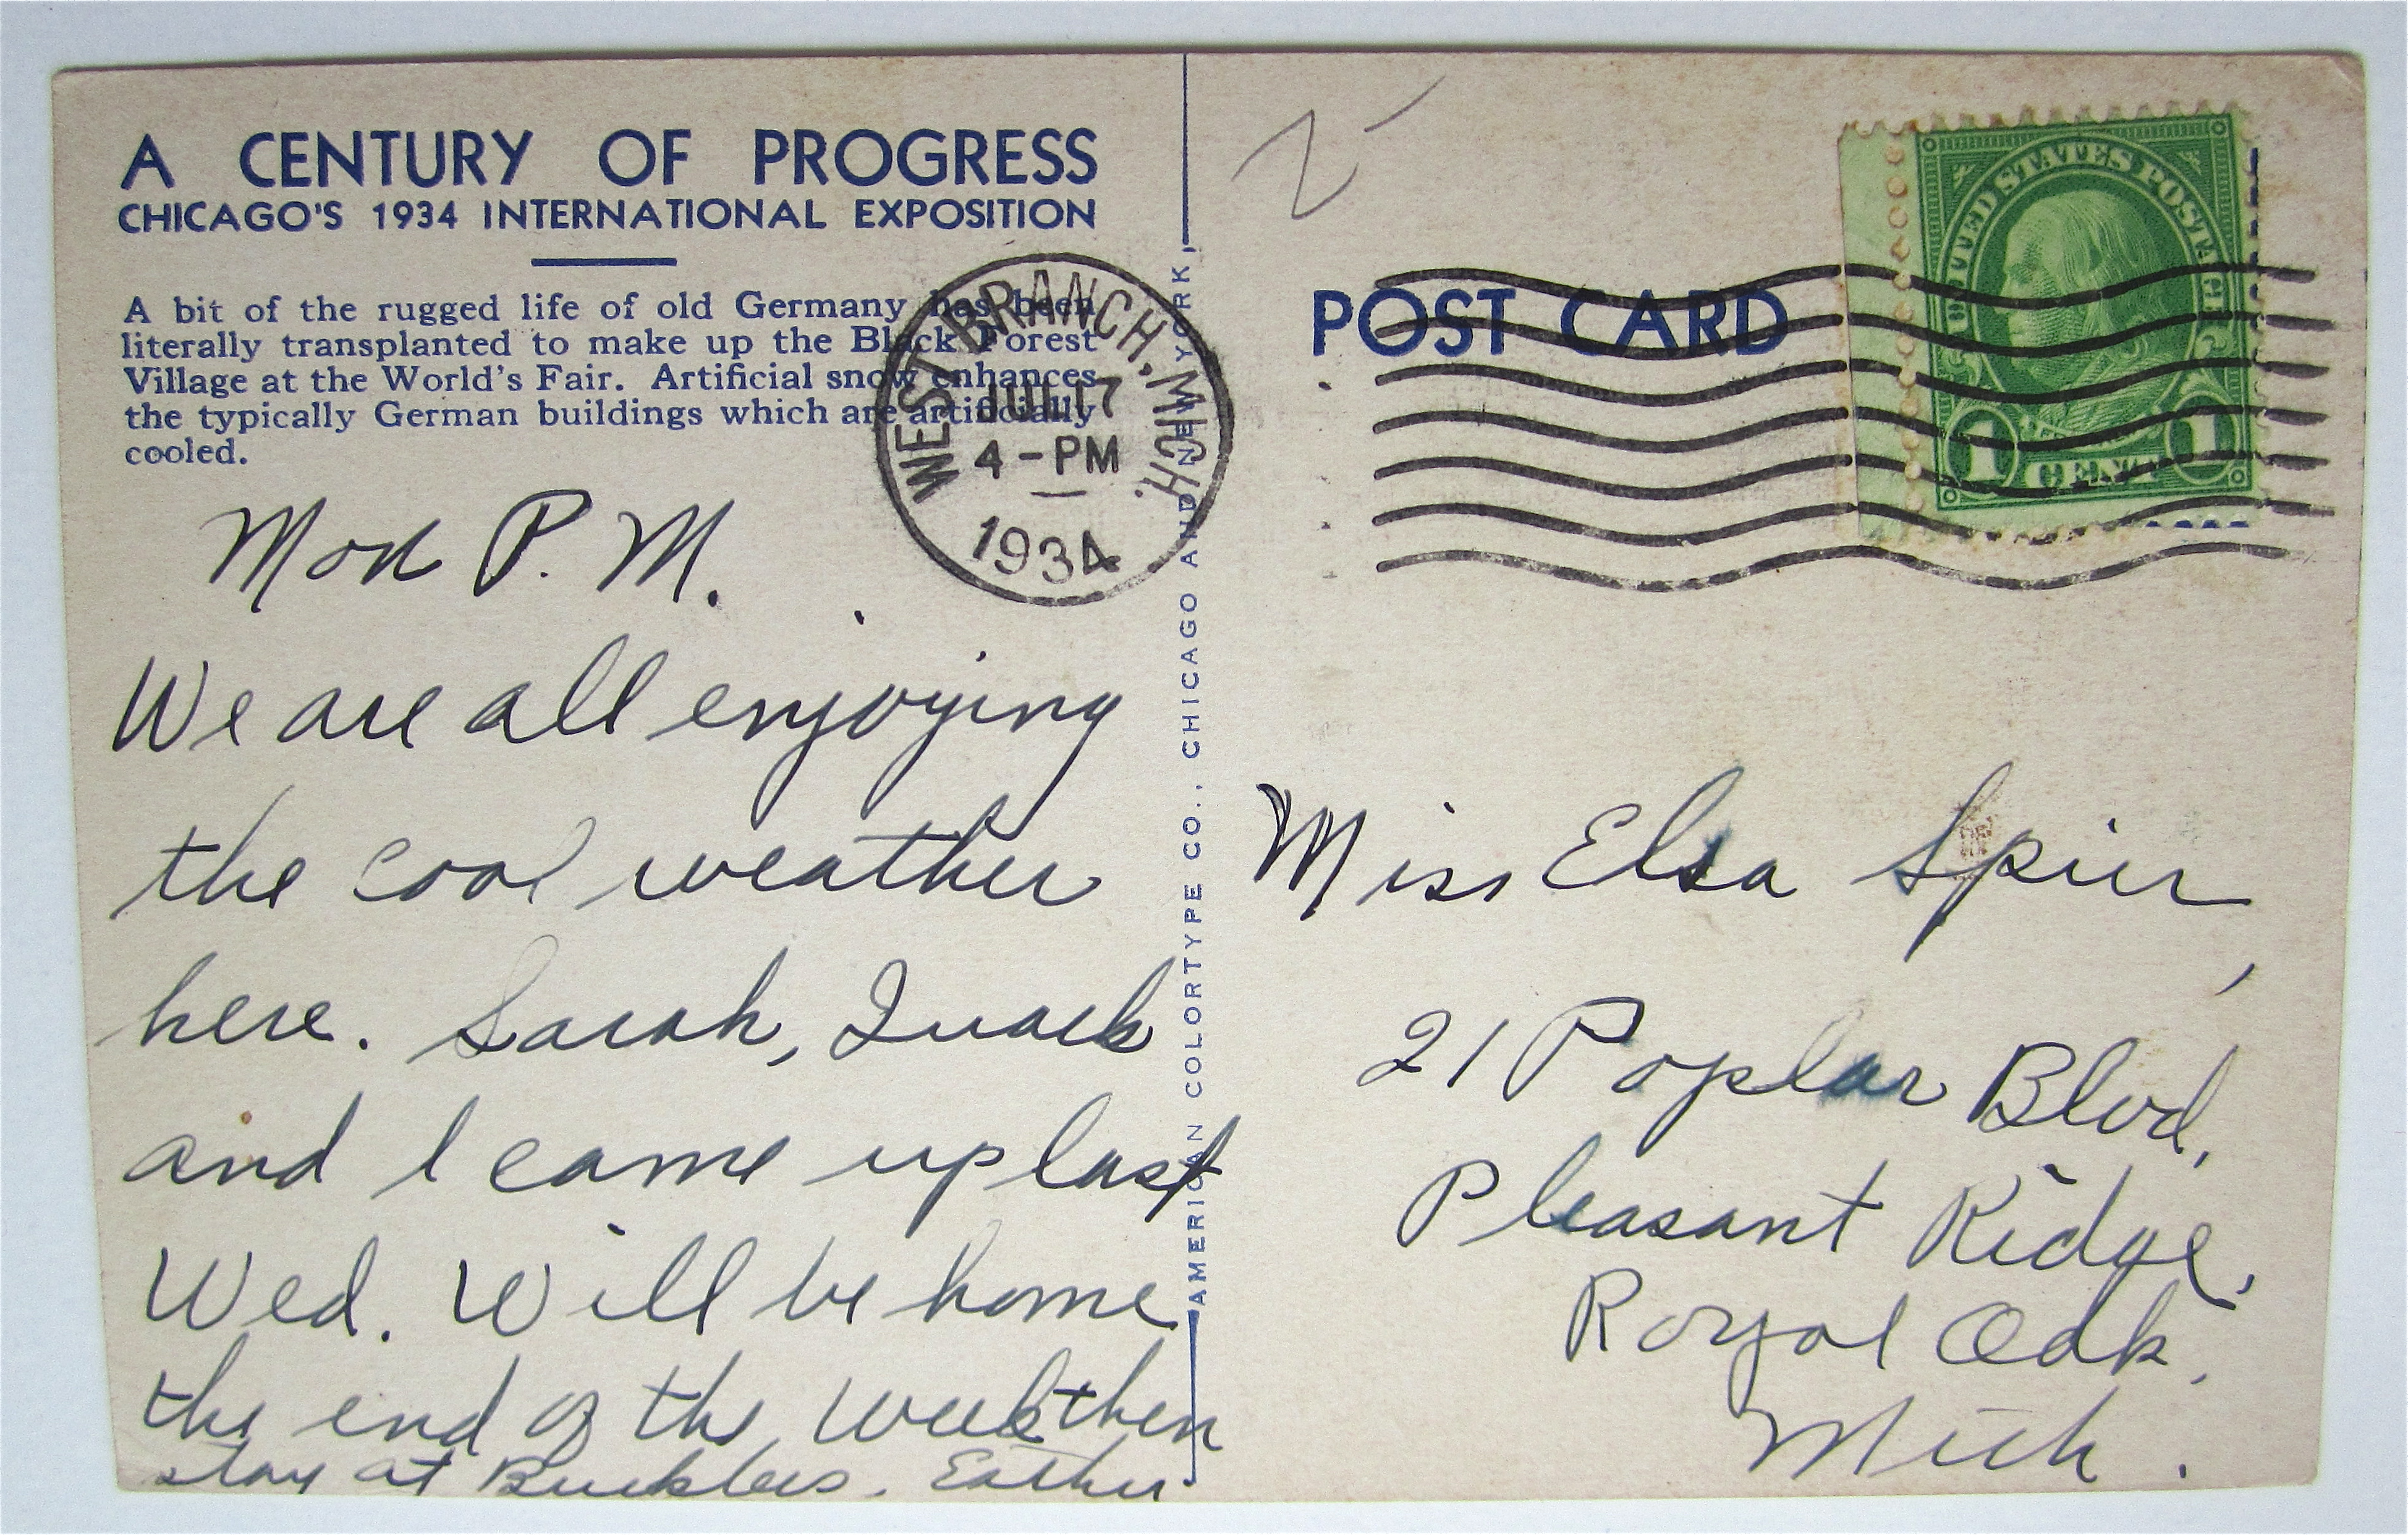 A CENTURY OF PROGRESS
CHICAGO'S 1934 INTERNATIONAL EXPOSITION
A bit of the rugged life of old Germany has been
literally transplanted to make up the Black Forest
Village at the World's Fair. Artificial snow enhances
the typically German buildings which are artificially
cooled.
WEST BRANCH, MICH.
JUL 17
4-PM
1934
Mon P.M.
We are all enjoying
the cool weather
here. Sarah,
and I came up last
Wed. Will be home
the end of the week then
stay at Esther
AMERICAN COLORTYPE CO., CHICAGO AND NEW YORK,
POST CARD
UNITED STATES POSTAGE
1 CENT 1
Miss Elsa Spier,
21 Poplar Blvd,
Pleasant Ridge,
Royal Oak,
Mich.